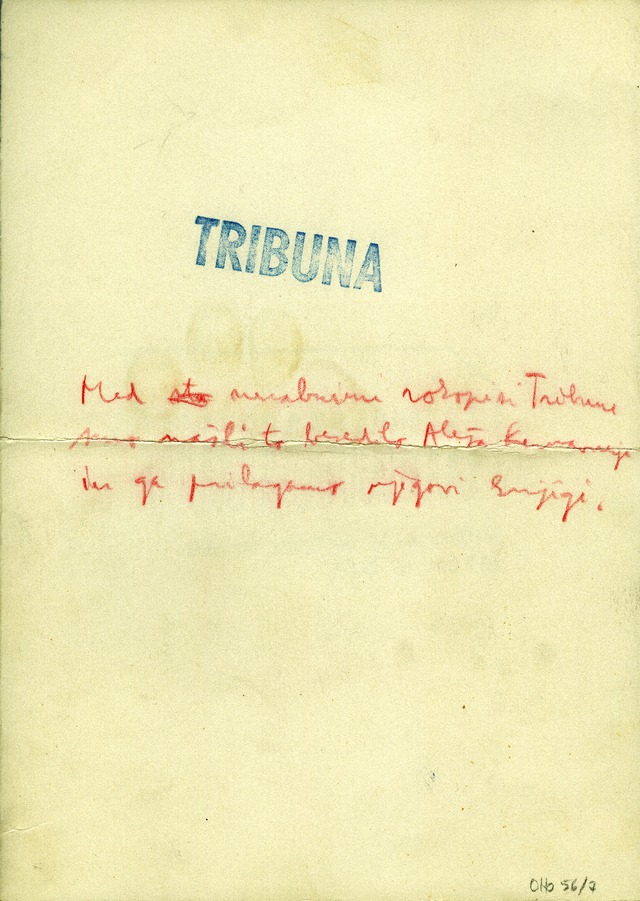 TRIBUNA
Med sto neuabnimi rokopisi Tribune
smo našli to besedilo Aleša Kermavnerja
in ga prilagamo njegovi knjigi.
OHo 56/7